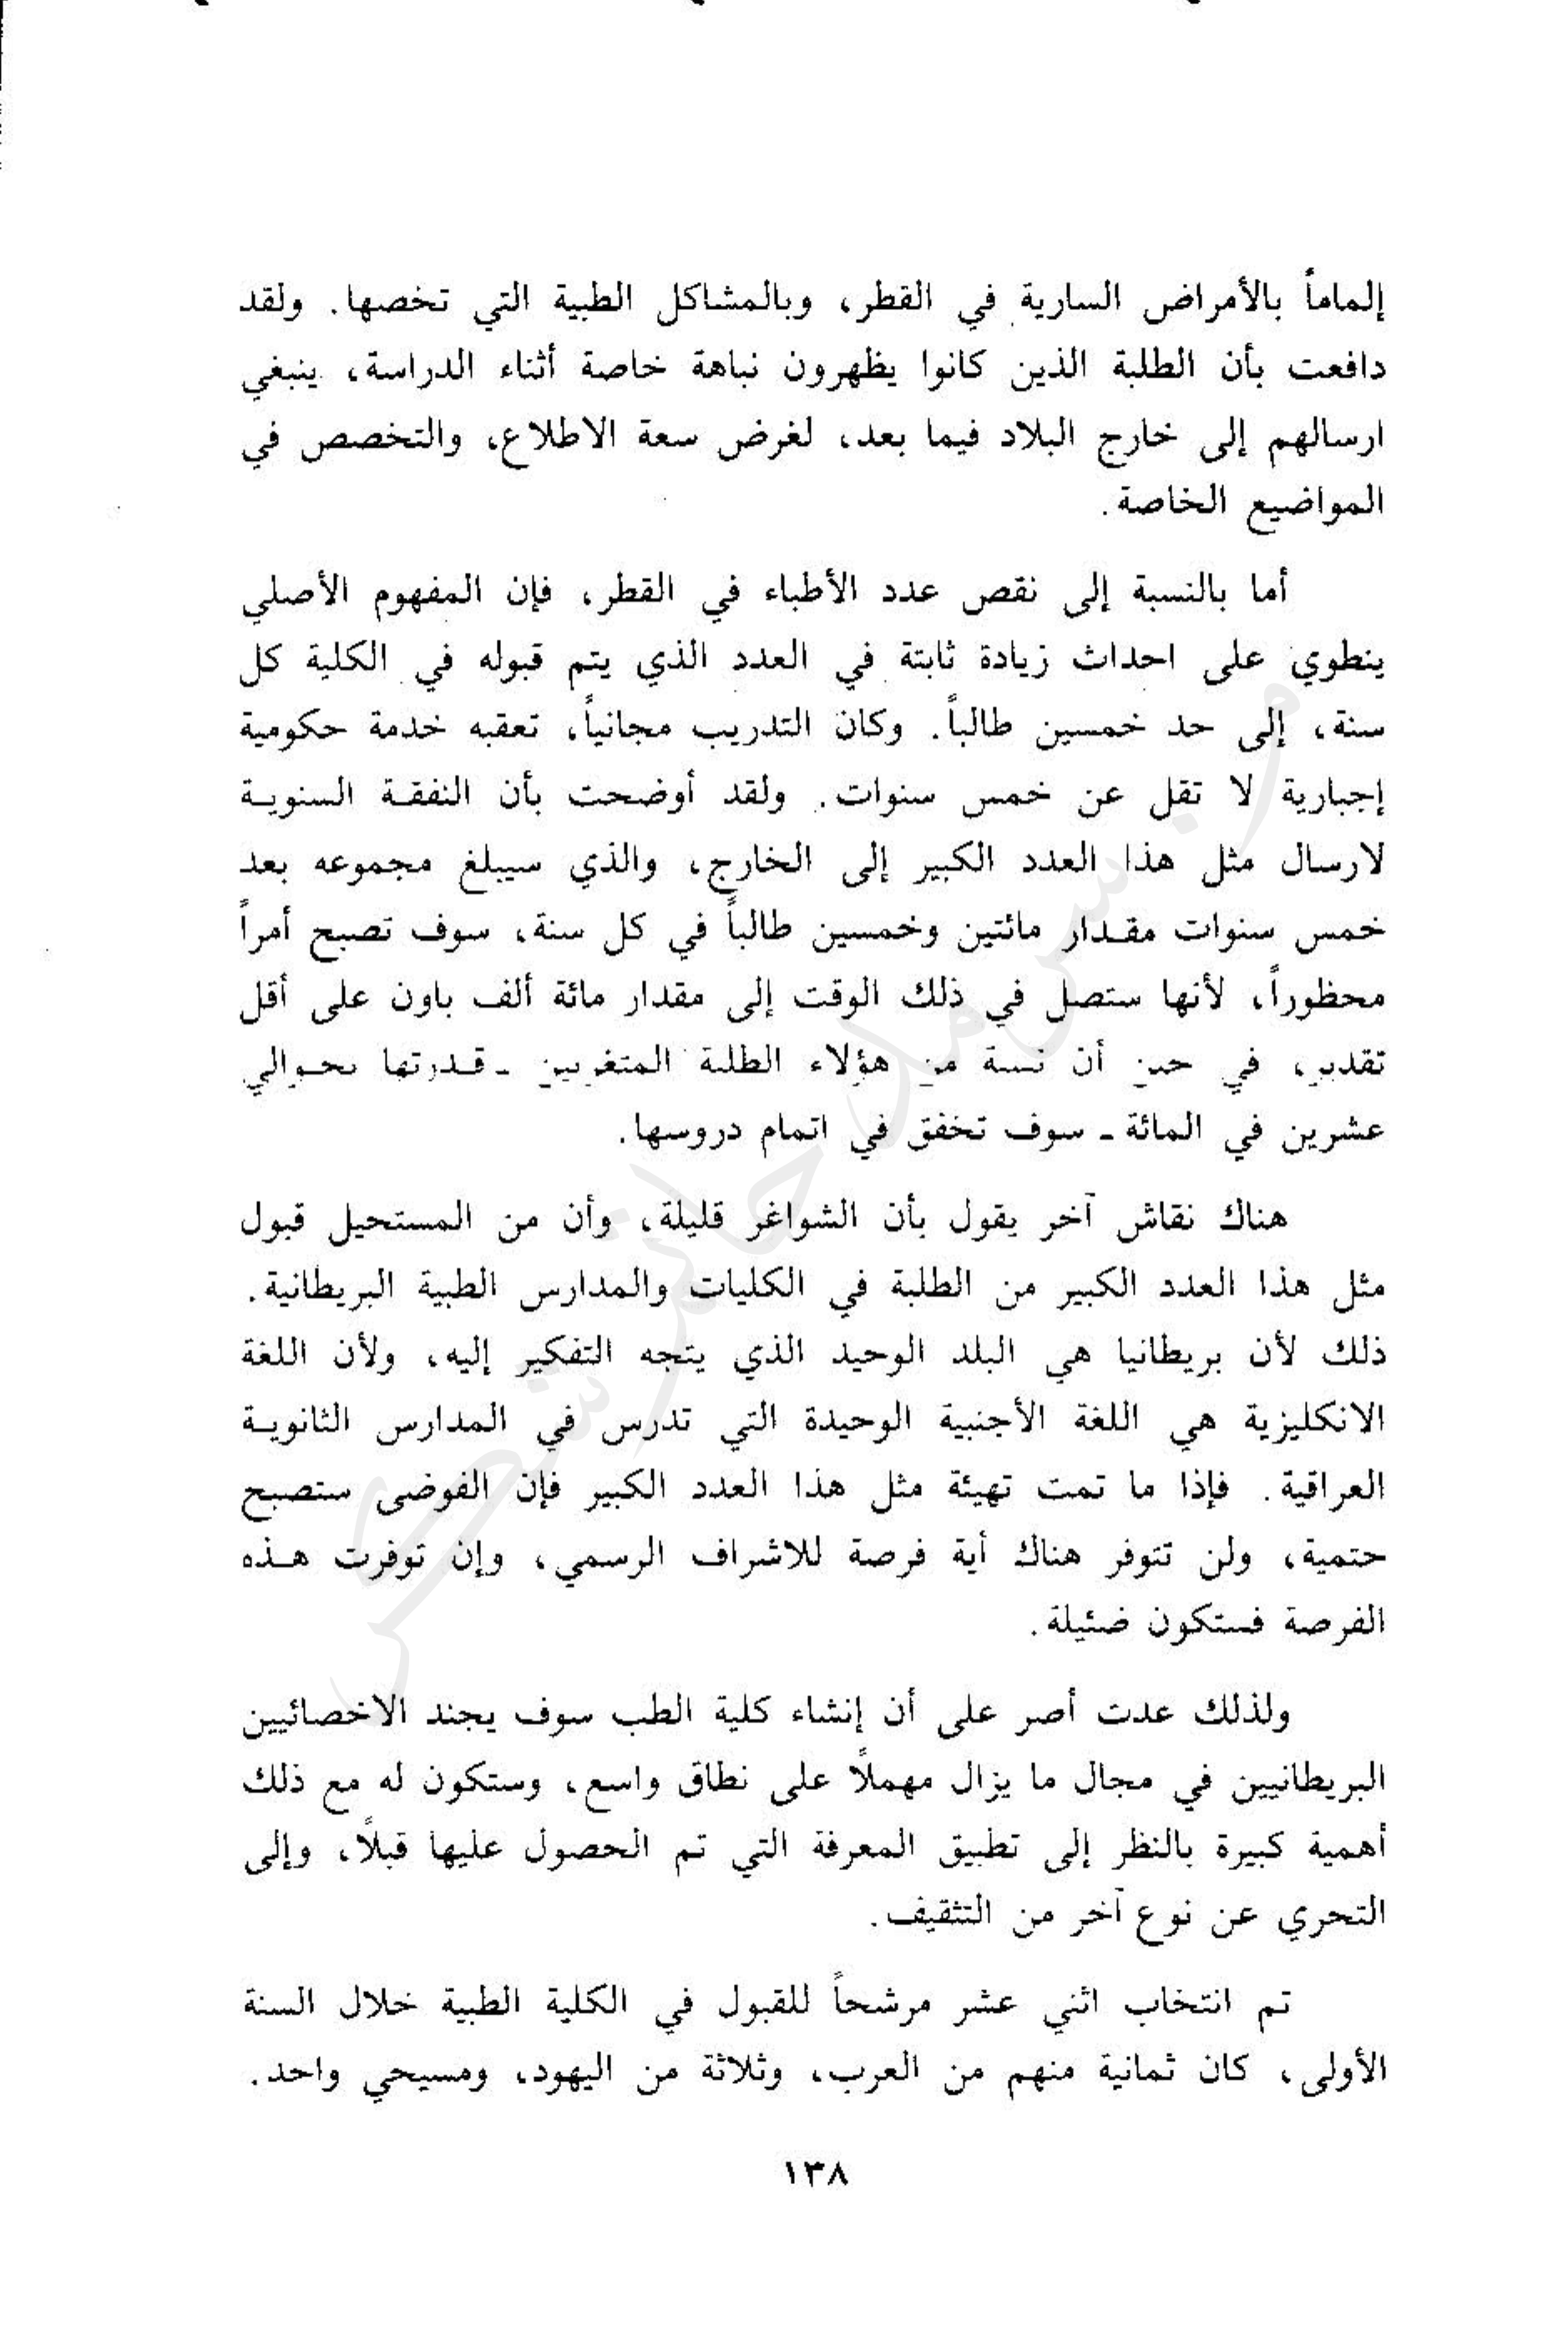 إلماماً بالأمراض السارية في القطر، وبالمشاكل الطبية التي تخصها. ولقد
دافعت بأن الطلبة الذين كانوا يظهرون نباهة خاصة أثناء الدراسة، ينبغي
ارسالهم إلى خارج البلاد فيما بعد، لغرض سعة الاطلاع، والتخصص في
المواضيع الخاصة.
أما بالنسبة إلى نقص عدد الأطباء في القطر، فإن المفهوم الأصلي
ينطوي على احداث زيادة ثابتة في العدد الذي يتم قبوله في الكلية كل
سنة، إلى حد خمسين طالباً. وكان التدريب مجانياً، تعقبه خدمة حكومية
إجبارية لا تقل عن خمس سنوات. ولقد أوضحت بأن النفقة السنوية
لارسال مثل هذا العدد الكبير إلى الخارج، والذي سيبلغ مجموعه بعد
خمس سنوات مقدار مائتين وخمسين طالباً في كل سنة، سوف تصبح أمراً
محظوراً، لأنها ستصل في ذلك الوقت إلى مقدار مائة ألف باون على أقل
تقدير، في حين أن نسبة من هؤلاء الطلبة المتغربين ـ قدرتها بحوالي
عشرين في المائة ـ سوف تخفق في اتمام دروسها.
هناك نقاش آخر يقول بأن الشواغر قليلة، وأن من المستحيل قبول
مثل هذا العدد الكبير من الطلبة في الكليات والمدارس الطبية البريطانية.
ذلك لأن بريطانيا هي البلد الوحيد الذي يتجه التفكير إليه، ولأن اللغة
الانكليزية هي اللغة الأجنبية الوحيدة التي تدرس في المدارس الثانوية
العراقية. فإذا ما تمت تهيئة مثل هذا العدد الكبير فإن الفوضى ستصبح
حتمية، ولن تتوفر هناك أية فرصة للاشراف الرسمي، وإن توفرت هذه
الفرصة فستكون ضئيلة.
ولذلك عدت أصر على أن إنشاء كلية الطب سوف يجند الاخصائيين
البريطانيين في مجال ما يزال مهملاً على نطاق واسع، وستكون له مع ذلك
أهمية كبيرة بالنظر إلى تطبيق المعرفة التي تم الحصول عليها قبلاً، وإلى
التحري عن نوع آخر من التثقيف.
تم انتخاب اثني عشر مرشحاً للقبول في الكلية الطبية خلال السنة
الأولى، كان ثمانية منهم من العرب، وثلاثة من اليهود، ومسيحي واحد.
١٣٨